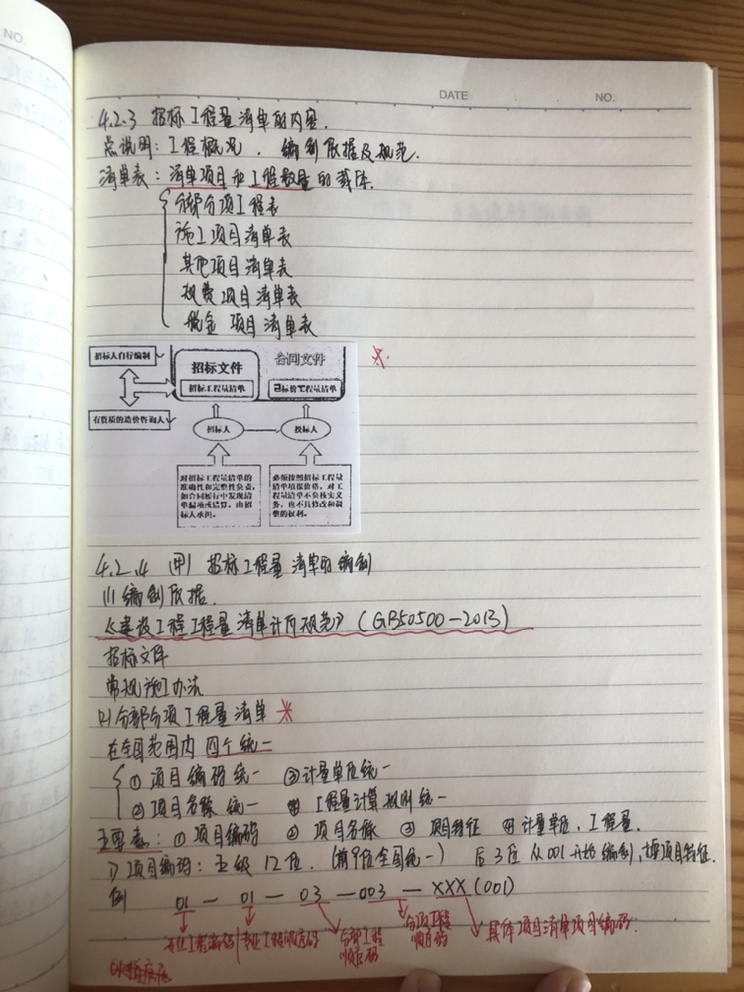 NO.
DATE NO.
4.2.3 招标工程量清单的内容.
总说明: 工程概况. 编制依据及规范.
清单表: 清单项目和工程数量的载体.
分部分项工程表
施工项目清单表
其他项目清单表
规费项目清单表
税金项目清单表
招标人自行编制
有资质的造价咨询人
招标文件
招标工程量清单
合同文件
已标价工程量清单
招标人
投标人
对招标工程量清单的
准确性和完整性负责,
如合同履行中发现清
单漏项或错算,由招
标人承担。
必须按照招标工程量
清单填报价格,对工
程量清单不负核实义
务,也不具修改和调
整的权利。
4.2.4 (甲) 招标工程量清单的编制
(1) 编制依据.
《建设工程工程量清单计价规范》(GB50500-2013)
招标文件
常规施工办法
(2) 分部分项工程量清单
在全国范围内 四个统一
① 项目编码统一 ③ 计量单位统一
② 项目名称统一 ④ 工程量计算规则统一
五要素: ① 项目编码 ② 项目名称 ③ 项目特征 ④ 计量单位、工程量.
1) 项目编码: 五级12位. (前9位全国统一) 后3位从001开始编制, 项目特征.
例 01 - 01 - 03 - 003 - XXX (001)
专业工程编码
专业工程顺序码
分部工程
顺序码
分项工程
顺序码
具体项目清单项目编码.